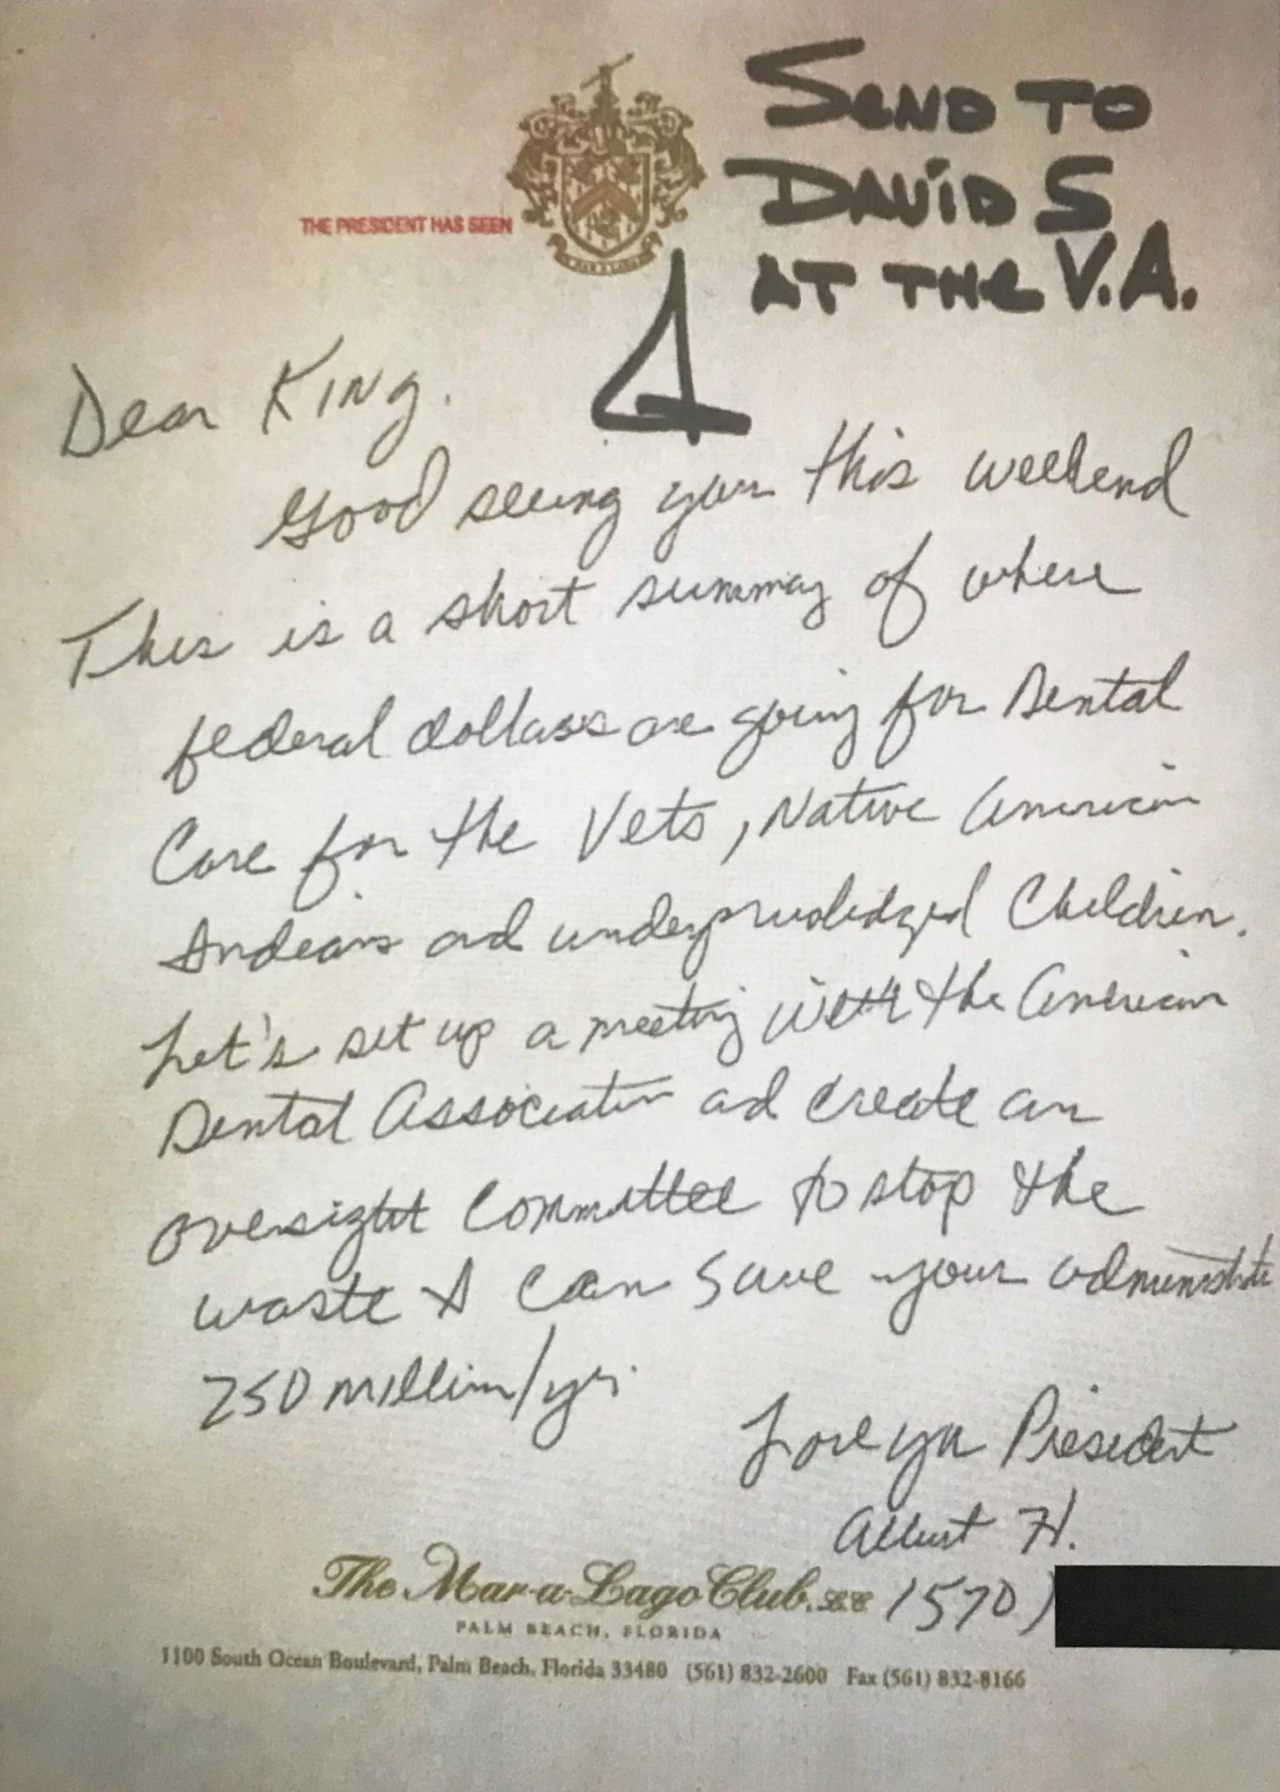 SEND TO
DAVID S
AT THE V.A.
THE PRESIDENT HAS SEEN
Dear King.
Good seeing you this weekend
This is a short summay of where
federal dollars are going for Dental
Care for the Vets, Native American
Indians and underpriviledged Children.
Let's set up a meeting with the American
Dental Association and create an
oversight Committee to stop the
waste I can save your administration
250 million/yr.
Love you President
Albert H.
(570)
The Mar-a-Lago Club, L.C.
PALM BEACH, FLORIDA
1100 South Ocean Boulevard, Palm Beach, Florida 33480 (561) 832-2600 Fax (561) 832-8166